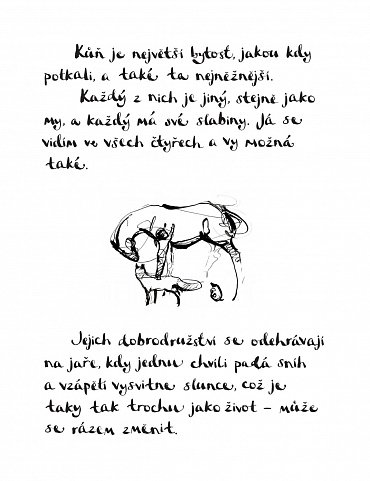 Kůň je největší bytost, jakou kdy
potkali, a také ta nejněžnější.
Každý z nich je jiný, stejně jako
my, a každý má své slabiny. Já se
vidím ve všech čtyřech a vy možná
také.
Jejich dobrodružství se odehrávají
na jaře, kdy jednu chvíli padá sníh
a vzápětí vysvitne slunce, což je
taky tak trochu jako život – může
se rázem změnit.